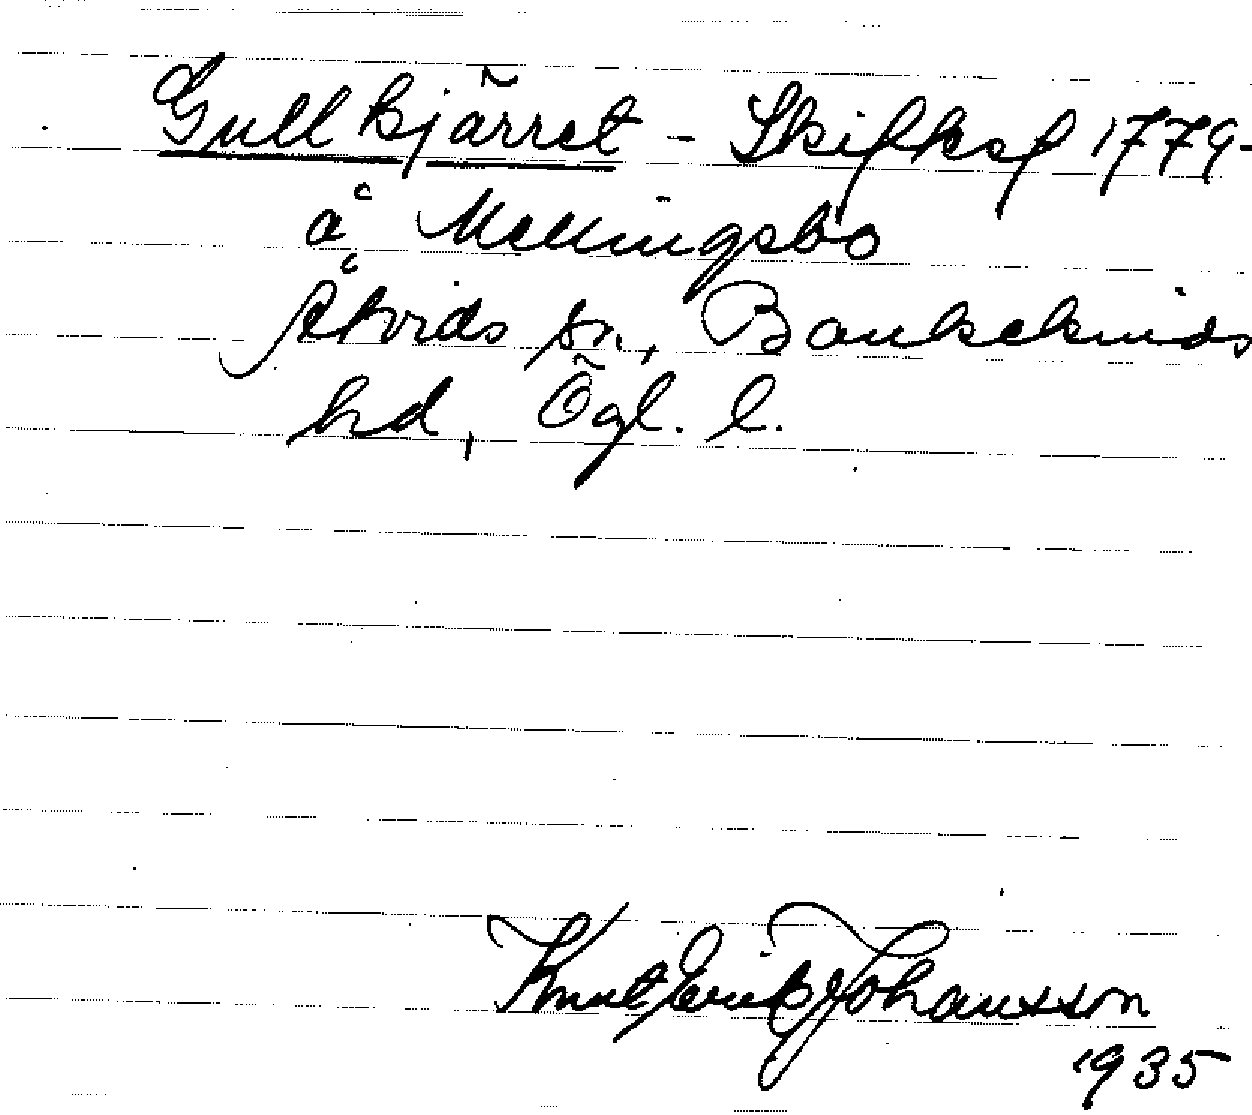 Gullkjärret - Skifksf 1779-
å Mellingsbo
Åtvids sn, Bankekinds
hd, Ögl. l.
Knut Erik Johansson
1935